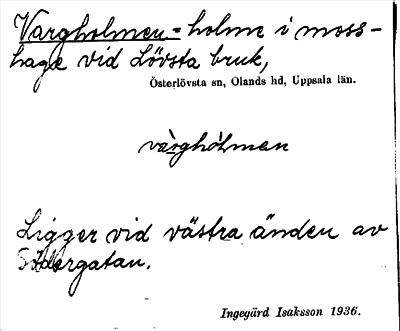 Vargholmen = holme i moss-
hage vid Lövsta bruk,
Österlövsta sn, Olands hd, Uppsala län.
vàrghòlmen
Ligger vid västra änden av
Södergatan.
Ingegärd Isaksson 1936.